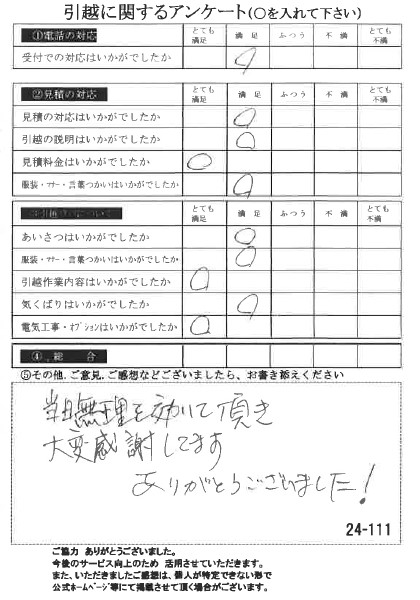 引越に関するアンケート(○を入れて下さい)
①電話の対応 とても満足 満足 ふつう 不満 とても不満
受付での対応はいかがでしたか
②見積の対応 とても満足 満足 ふつう 不満 とても不満
見積の対応はいかがでしたか
引越の説明はいかがでしたか
見積料金はいかがでしたか
服装・マナー・言葉つかいはいかがでしたか
とても満足 満足 ふつう 不満 とても不満
あいさつはいかがでしたか
服装・マナー・言葉つかいはいかがでしたか
引越作業内容はいかがでしたか
気くばりはいかがでしたか
電気工事・オプションはいかがでしたか
④.総合
⑤その他.ご意見.ご感想などございましたら、お書き添えください
当日無理を効いて頂き
大変感謝してます
ありがとうございました!
24-111
ご協力 ありがとうございました。
今後のサービス向上のため 活用させていただきます。
また、いただきましたご感想は、個人が特定できない形で
公式ホームページ等にて掲載させて頂く場合がございます。